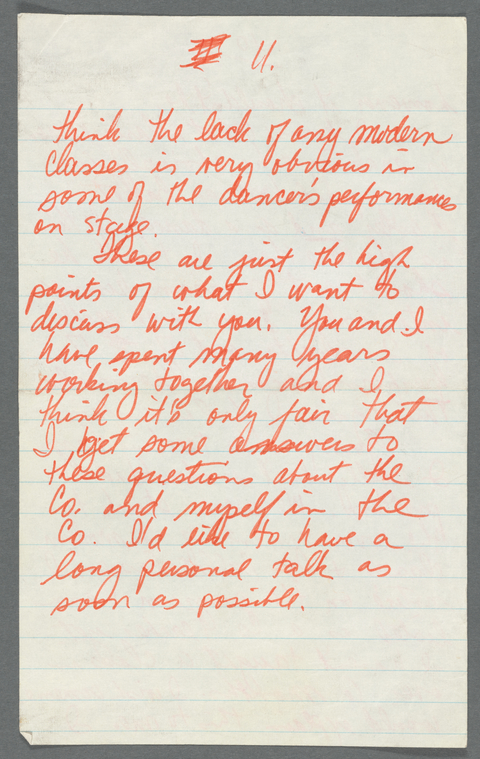 11.
think the lack of any modern
classes is very obvious in
some of the dancer's performances
on stage.
These are just the high
points of what I want to
discuss with you. You and I
have spent many years
working together and I
think it's only fair that
I get some answers to
these questions about the
Co. and myself in the
Co. I'd like to have a
long personal talk as
soon as possible.